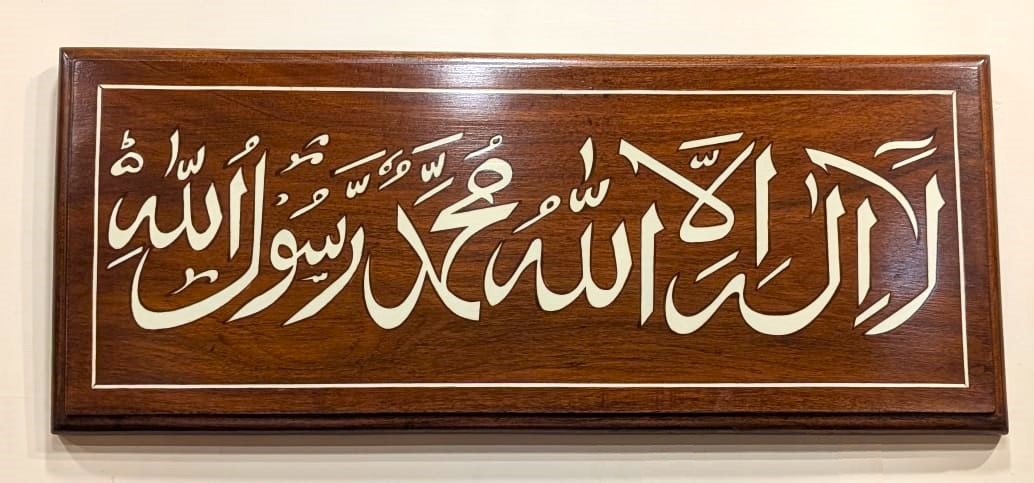 لَا اِلٰهَ اِلَّا اللّٰهُ مُحَمَّدٌ رَّسُوْلُ اللّٰهِ